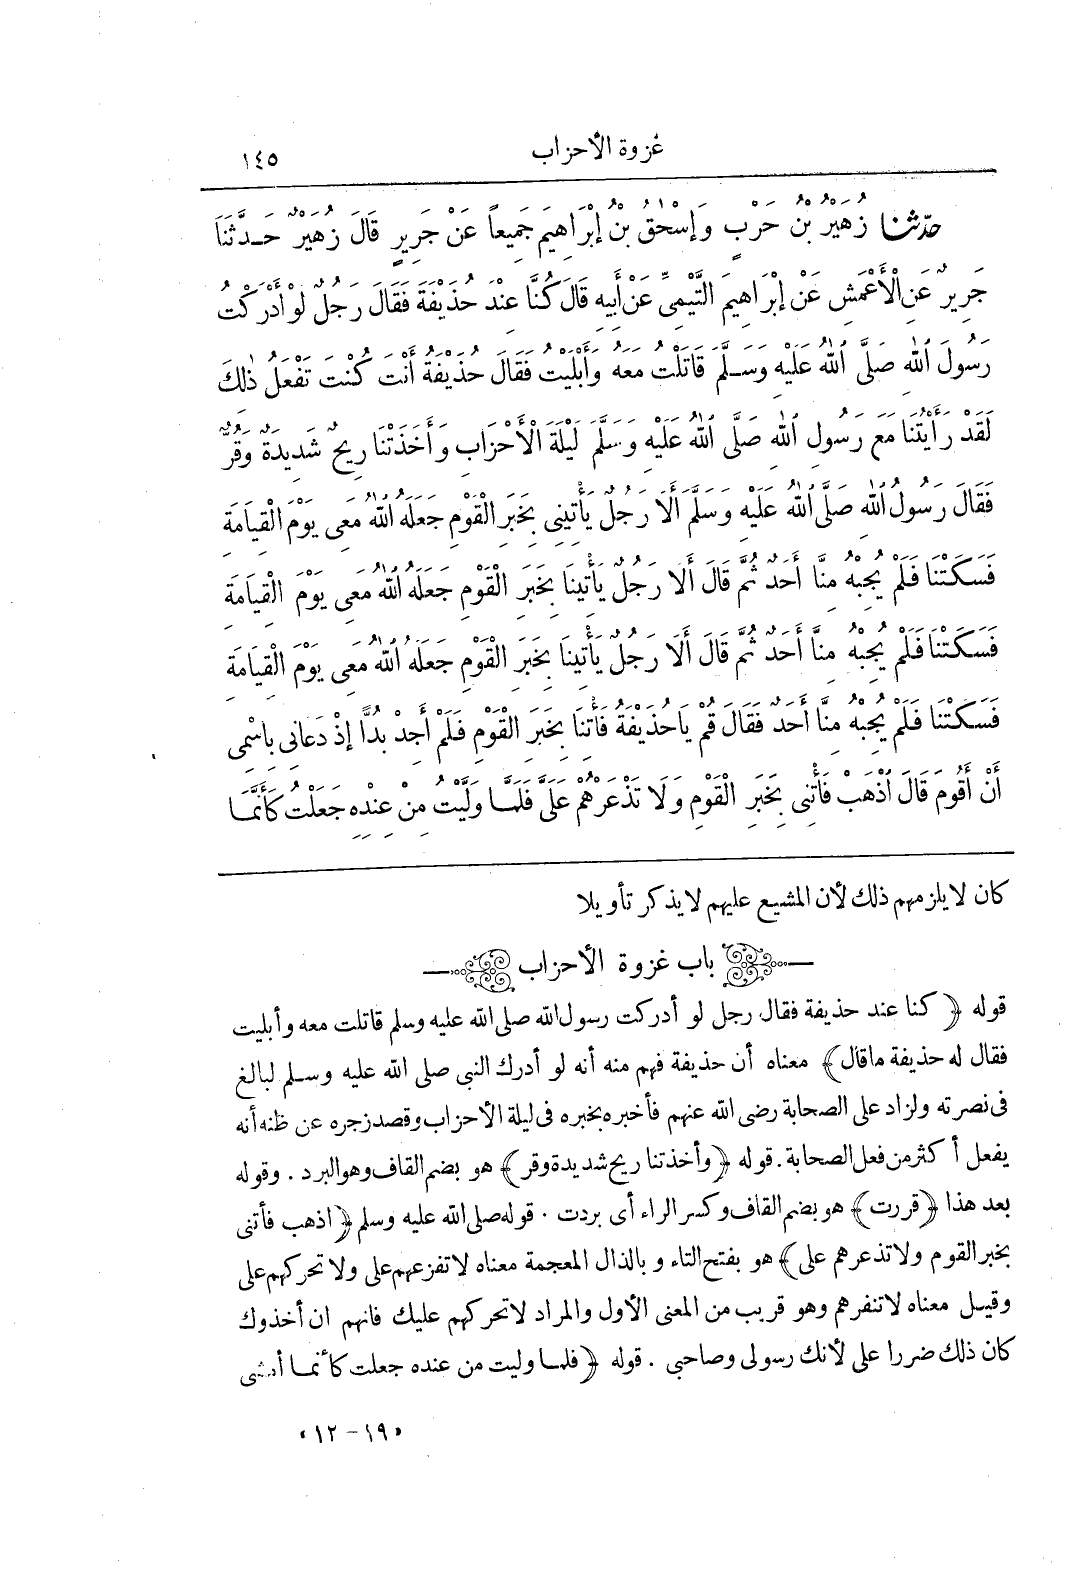 غزوة الأحزاب ١٤٥
حدّثنا زُهَيْرُ بْنُ حَرْبٍ وَإِسْحٰقُ بْنُ إِبْرَاهِيمَ جَمِيعاً عَنْ جَرِيرٍ قَالَ زُهَيْرٌ حَدَّثَنَا
جَرِيرٌ عَنِ الْأَعْمَشِ عَنْ إِبْرَاهِيمَ التَّيْمِيِّ عَنْ أَبِيهِ قَالَ كُنَّا عِنْدَ حُذَيْفَةَ فَقَالَ رَجُلٌ لَوْ أَدْرَكْتُ
رَسُولَ ٱللهِ صَلَّى ٱللهُ عَلَيْهِ وَسَلَّمَ قَاتَلْتُ مَعَهُ وَأَبْلَيْتُ فَقَالَ حُذَيْفَةُ أَنْتَ كُنْتَ تَفْعَلُ ذٰلِكَ
لَقَدْ رَأَيْتُنَا مَعَ رَسُولِ ٱللهِ صَلَّى ٱللهُ عَلَيْهِ وَسَلَّمَ لَيْلَةَ الْأَحْزَابِ وَأَخَذَتْنَا رِيحٌ شَدِيدَةٌ وَقُرٌّ
فَقَالَ رَسُولُ ٱللهِ صَلَّى ٱللهُ عَلَيْهِ وَسَلَّمَ أَلَا رَجُلٌ يَأْتِينِى بِخَبَرِ الْقَوْمِ جَعَلَهُ ٱللهُ مَعِى يَوْمَ الْقِيَامَةِ
فَسَكَتْنَا فَلَمْ يُجِبْهُ مِنَّا أَحَدٌ ثُمَّ قَالَ أَلَا رَجُلٌ يَأْتِينَا بِخَبَرِ الْقَوْمِ جَعَلَهُ ٱللهُ مَعِى يَوْمَ الْقِيَامَةِ
فَسَكَتْنَا فَلَمْ يُجِبْهُ مِنَّا أَحَدٌ ثُمَّ قَالَ أَلَا رَجُلٌ يَأْتِينَا بِخَبَرِ الْقَوْمِ جَعَلَهُ ٱللهُ مَعِى يَوْمَ الْقِيَامَةِ
فَسَكَتْنَا فَلَمْ يُجِبْهُ مِنَّا أَحَدٌ فَقَالَ قُمْ يَاحُذَيْفَةُ فَأْتِنَا بِخَبَرِ الْقَوْمِ فَلَمْ أَجِدْ بُدًّا إِذْ دَعَانِى بِاسْمِى
أَنْ أَقُومَ قَالَ ٱذْهَبْ فَأْتِنِى بِخَبَرِ الْقَوْمِ وَلَا تَذْعَرْهُمْ عَلَىَّ فَلَمَّا وَلَّيْتُ مِنْ عِنْدِهِ جَعَلْتُ كَأَنَّمَا
كان لا يلزمهم ذلك لأن المشيع عليهم لا يذكر تأويلا
باب غزوة الأحزاب
قوله ﴿كنا عند حذيفة فقال رجل لو أدركت رسول الله صلى الله عليه وسلم قاتلت معه وأبليت
فقال له حذيفة ماقال﴾ معناه أن حذيفة فهم منه أنه لو أدرك النبى صلى الله عليه وسلم لبالغ
فى نصرته ولزاد على الصحابة رضى الله عنهم فأخبره بخبره فى ليلة الأحزاب وقصد زجره عن ظنه أنه
يفعل أكثر من فعل الصحابة. قوله ﴿وأخذتنا ريح شديدة وقر﴾ هو بضم القاف وهو البرد. وقوله
بعد هذا ﴿قررت﴾ هو بضم القاف وكسر الراء أى بردت. قوله صلى الله عليه وسلم ﴿اذهب فأتنى
بخبر القوم ولا تذعرهم على﴾ هو بفتح التاء وبالذال المعجمة معناه لا تفزعهم على ولا تحركهم على
وقيل معناه لا تنفرهم وهو قريب من المعنى الأول والمراد لا تحركهم عليك فانهم ان أخذوك
كان ذلك ضررا على لأنك رسولى وصاحبى. قوله ﴿فلما وليت من عنده جعلت كأنما أمشى
«١٩ – ١٢»